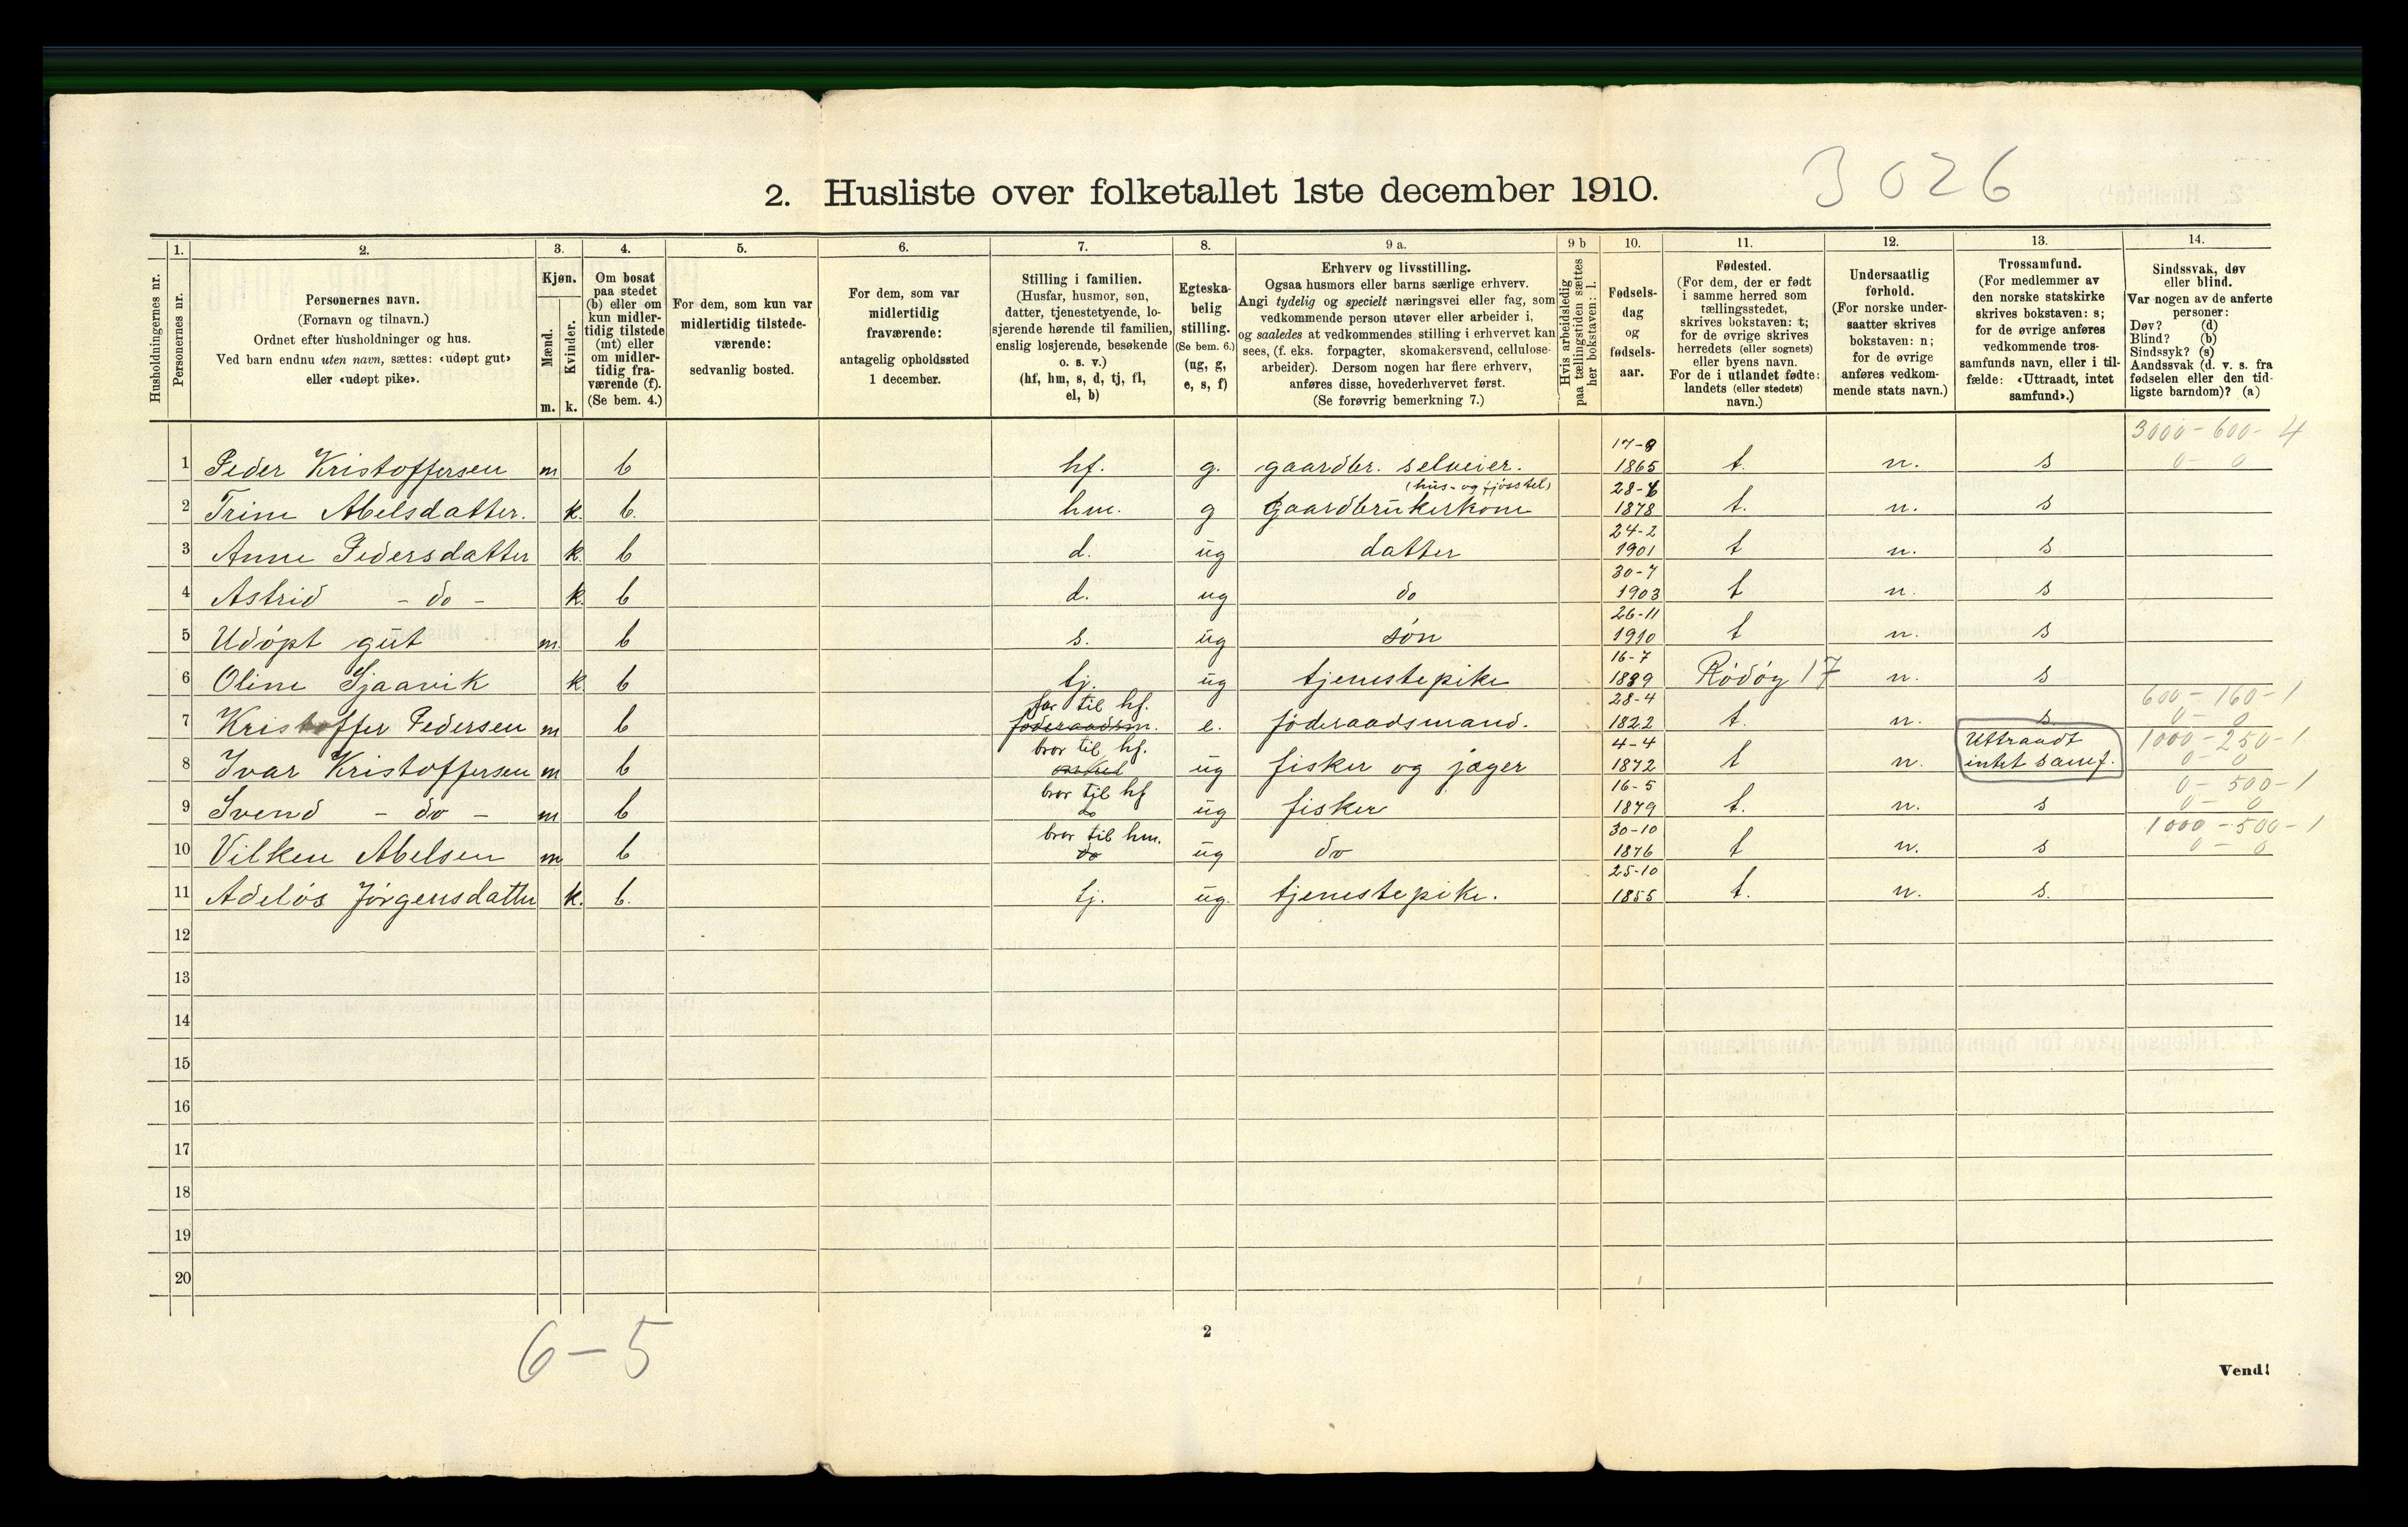 2. Husliste over folketallet 1ste december 1910.
3026
Husholdningernes nr.
1.
Personernes nr.
2.
Personernes navn.
(Fornavn og tilnavn.)
Ordnet efter husholdninger og hus.
Ved barn endnu uten navn, sættes: «udøpt gut»
eller «udøpt pike».
3.
Kjøn.
Mænd.
Kvinder.
m. k.
4.
Om bosat
paa stedet
(b) eller om
kun midler-
tidig tilstede
(mt) eller
om midler-
tidig fra-
værende (f).
(Se bem. 4.)
5.
For dem, som kun var
midlertidig tilstede-
værende:
sedvanlig bosted.
6.
For dem, som var
midlertidig
fraværende:
antagelig opholdssted
1 december.
7.
Stilling i familien.
(Husfar, husmor, søn,
datter, tjenestetyende, lo-
sjerende hørende til familien,
enslig losjerende, besøkende
o. s. v.)
(hf, hm, s, d, tj, fl,
el, b)
8.
Egteska-
belig
stilling.
(Se bem. 6.)
(ug, g,
e, s, f)
9 a.
Erhverv og livsstilling.
Ogsaa husmors eller barns særlige erhverv.
Angi tydelig og specielt næringsvei eller fag, som
vedkommende person utøver eller arbeider i,
og saaledes at vedkommendes stilling i erhvervet kan
sees, (f. eks. forpagter, skomakersvend, cellulose-
arbeider). Dersom nogen har flere erhverv,
anføres disse, hovederhvervet først.
(Se forøvrig bemerkning 7.)
9 b
Hvis arbeidsledig
paa tællingstiden sættes
her bokstaven: l.
10.
Fødsels-
dag
og
fødsels-
aar.
11.
Fødested.
(For dem, der er født
i samme herred som
tællingsstedet,
skrives bokstaven: t;
for de øvrige skrives
herredets (eller sognets)
eller byens navn.
For de i utlandet fødte:
landets (eller stedets)
navn.)
12.
Undersaatlig
forhold.
(For norske under-
saatter skrives
bokstaven: n;
for de øvrige
anføres vedkom-
mende stats navn.)
13.
Trossamfund.
(For medlemmer av
den norske statskirke
skrives bokstaven: s;
for de øvrige anføres
vedkommende tros-
samfunds navn, eller i til-
fælde: «Uttraadt, intet
samfund».)
14.
Sindssvak, døv
eller blind.
Var nogen av de anførte
personer:
Døv? (d)
Blind? (b)
Sindssyk? (s)
Aandssvak (d. v. s. fra
fødselen eller den tid-
ligste barndom)? (a)
17-9 3000 - 600 - 4
1 Peder Kristoffersen m b hf. g. gaardbr. selveier. 1865 t. n. s 0 - 0
(hus- og fjøsstel) 28-
2 Trine Abelsdatter. k. b. hm. g gaardbrukerkone 1878 t. n. s
24-2
3 Anne Pedersdatter k. b d. ug datter 1901 t n. s
30-7
4 Astrid - do - k. b d. ug do 1903 t n. s
26-11
5 Udøpt gut m. b s. ug søn 1910 t n. s
16-7
6 Oline Sjaavik k. b tj. ug tjenestepike 1889 Rödöy 17 n. s
far til hf. 28-4 600 - 160 - 1
7 Kristoffer Pedersen m b føderaadsm. e. føderaadsmand. 1822 t. n. s 0 - 0
bror til hf. 4-4 Uttraadt 1000 - 250 - 1
8 Ivar Kristoffersen m b ug fisker og jæger 1872 t n. intet samf. 0 - 0
bror til hf 16-5 0 - 500 - 1
9 Svend - do - m b do ug fisker 1879 t. n. s 0 - 0
bror til hm. 30-10 1000 - 500 - 1
10 Vilken Abelsen m b do ug do 1876 t n. s 0 - 0
25-10
11 Adeløs Jørgensdatter k. b. tj. ug. tjenestepike. 1855 t. n. s.
12
13
14
15
16
17
18
19
20
6-5
2
Vend!